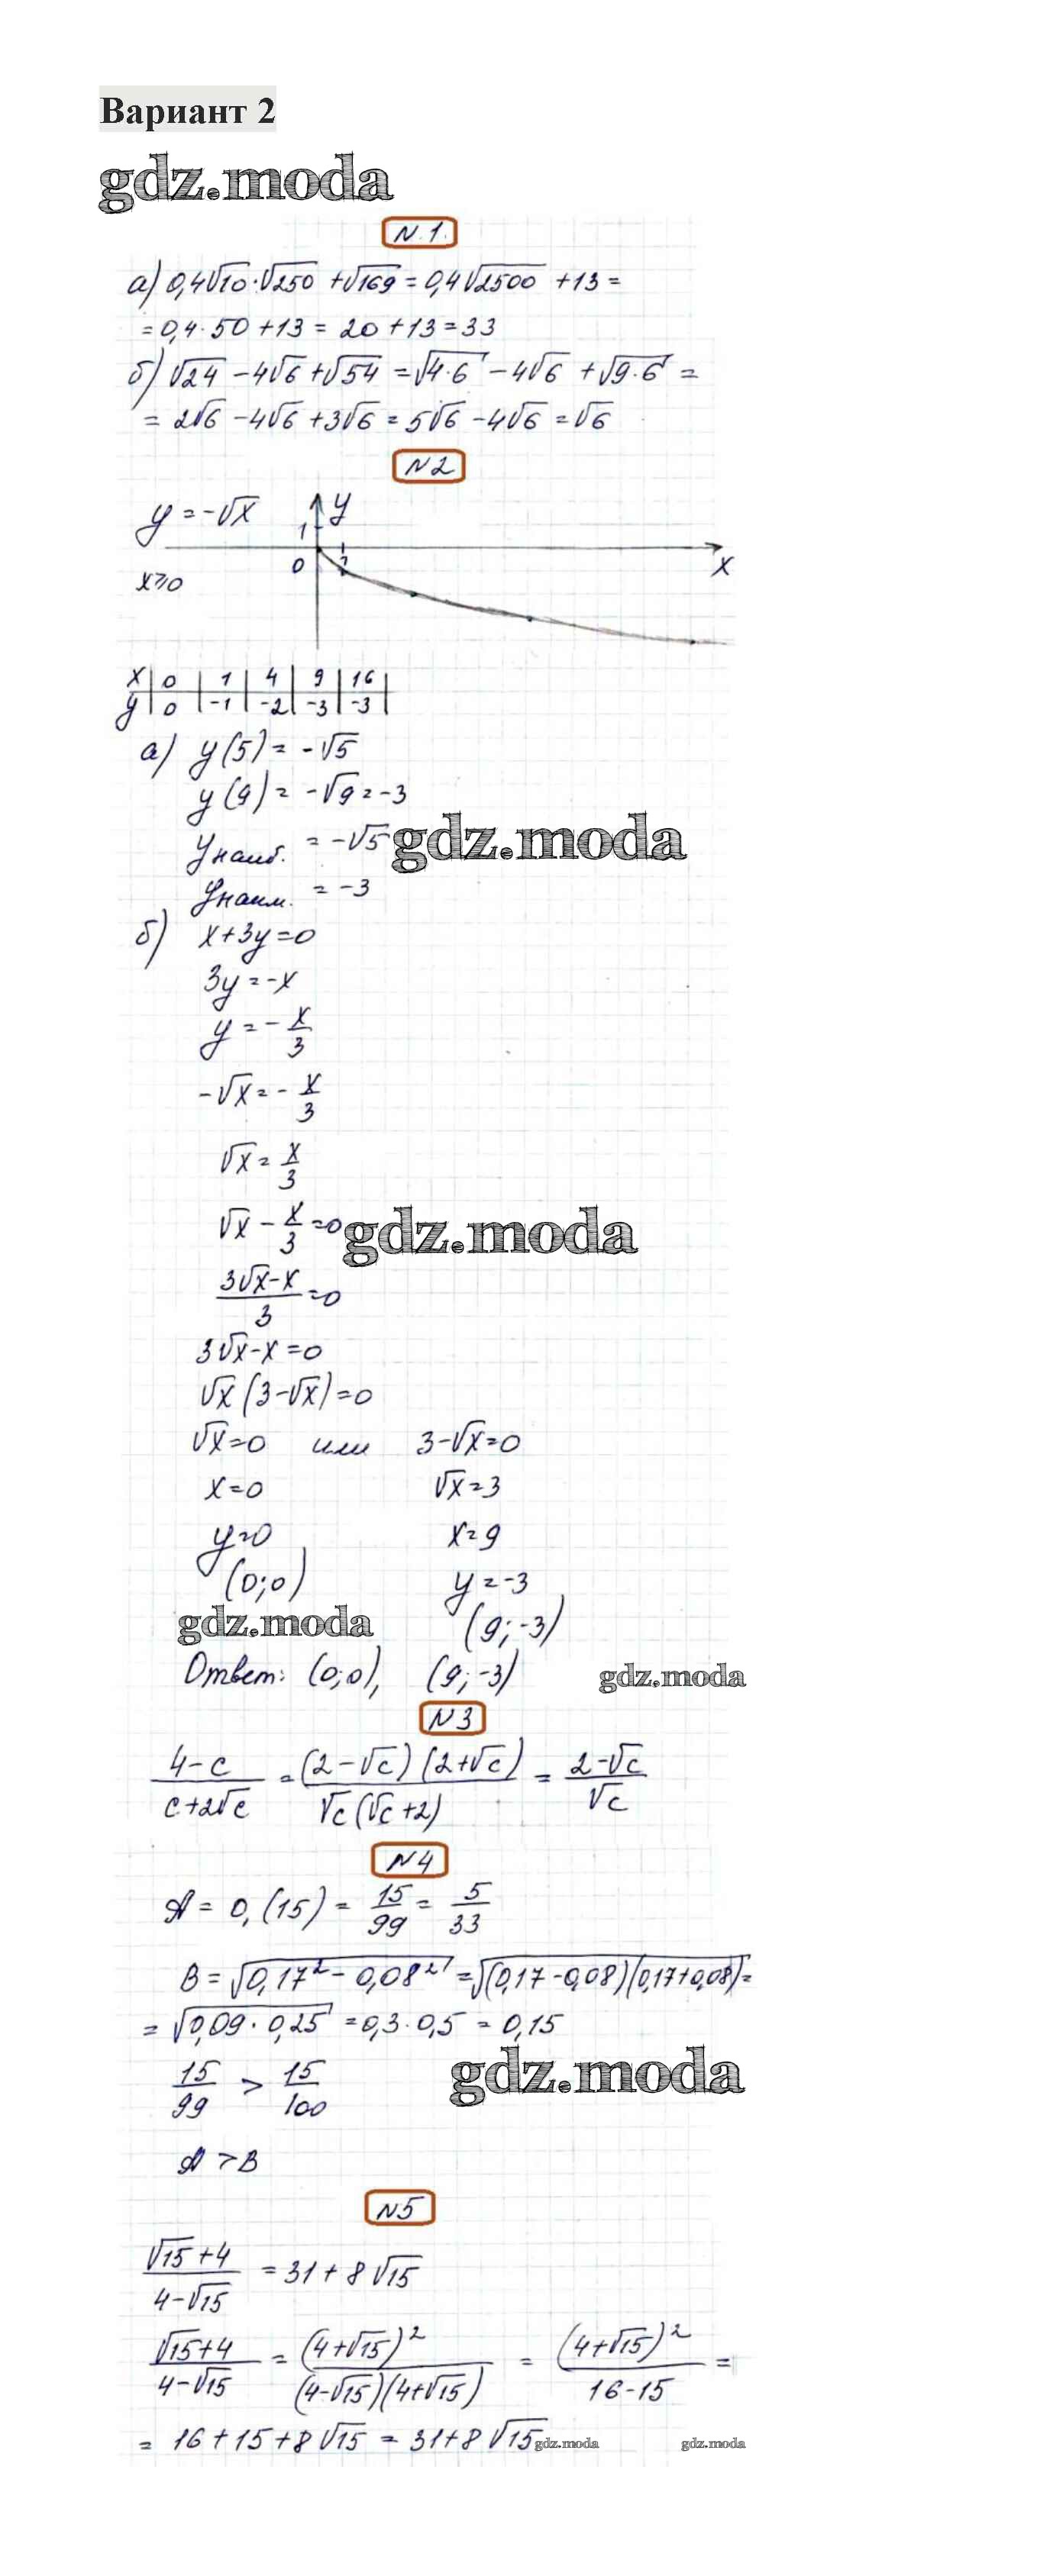 Вариант 2
gdz.moda
N.1.
а) 0,4√10·√250 + √169 = 0,4√2500 + 13 =
= 0,4·50 + 13 = 20 + 13 = 33
б) √24 - 4√6 + √54 = √4·6 - 4√6 + √9·6 =
= 2√6 - 4√6 + 3√6 = 5√6 - 4√6 = √6
N2
y = -√x
y
1
0
1
x
x≥0
x | 0 | 1 | 4 | 9 | 16 |
y | 0 | -1 | -2 | -3 | -3 |
а) y(5) = -√5
y(9) = -√9 = -3
yнаиб. = -√5
gdz.moda
yнаим. = -3
б) x+3y=0
3y = -x
y = -x/3
-√x = -x/3
√x = x/3
√x - x/3 = 0
gdz.moda
(3√x-x)/3 = 0
3√x-x = 0
√x(3-√x) = 0
√x=0 или 3-√x=0
x=0 √x=3
y=0 x=9
(0;0) y=-3
gdz.moda (9;-3)
Ответ: (0;0), (9;-3)
gdz.moda
N3
(4-c)/(c+2√c) = (2-√c)(2+√c)/(√c(√c+2)) = (2-√c)/√c
N4
A = 0,(15) = 15/99 = 5/33
B = √(0,17² - 0,08²) = √((0,17-0,08)(0,17+0,08)) =
= √(0,09·0,25) = 0,3·0,5 = 0,15
15/99 > 15/100
gdz.moda
A > B
N5
(√15+4)/(4-√15) = 31+8√15
(√15+4)/(4-√15) = (4+√15)²/((4-√15)(4+√15)) = (4+√15)²/(16-15) =
= 16+15+8√15 = 31+8√15
gdz.moda
gdz.moda